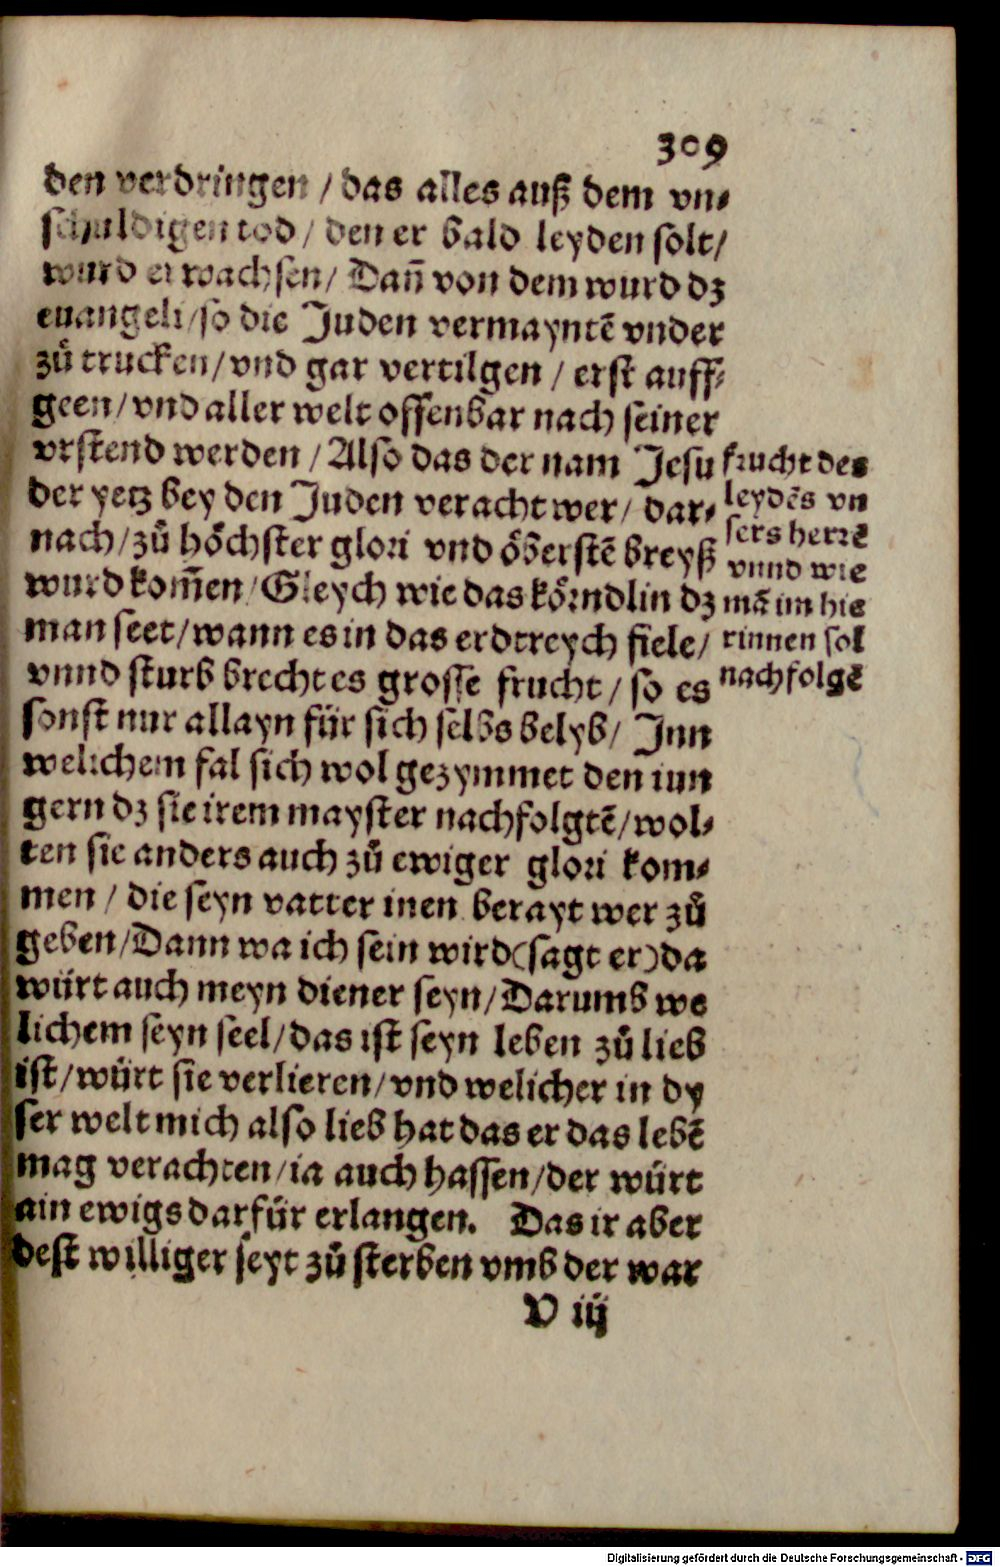 309
den verdringen / das alles auß dem vn⸗
schuldigen tod / den er bald leyden solt /
wurd erwachsen / Dañ von dem wurd dz
euangeli / so die Juden vermayntẽ vnder
zů trucken / vnd gar vertilgen / erst auff⸗
geen / vnd aller welt offenbar nach seiner
vrstend werden / Also das der nam Jesu
der yetz bey den Juden veracht wer / dar⸗
nach / zů hoͤchster glori vnd oͤberstẽ breyß
wurd kom̃en / Gleych wie das koͤrndlin dz
man seet / wann es in das erdtreych fiele /
vnnd sturb brecht es grosse frucht / so es
sonst nur allayn für sich selbs belyb / Jnn
welichem fal sich wol gezymmet den iun
gern dz sie irem mayster nachfolgtẽ / wol⸗
ten sie anders auch zů ewiger glori kom⸗
men / die seyn vatter inen berayt wer zů
geben / Dann wa ich sein wird (sagt er) da
würt auch meyn diener seyn / Darumb we
lichem seyn seel / das ist seyn leben zů lieb
ist / würt sie verlieren / vnd welicher in dy
ser welt mich also lieb hat das er das lebẽ
mag verachten / ia auch hassen / der würt
ain ewigs darfür erlangen. Das ir aber
dest williger seyt zů sterben vmb der war
V iij
frucht des
leydẽs vn
sers herrẽ
vnnd wie
mã im hie
rinnen sol
nachfolgẽ
Digitalisierung gefördert durch die Deutsche Forschungsgemeinschaft - DFG